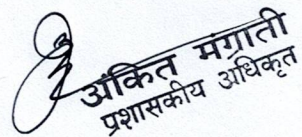 अंकित मंगाती
प्रशासकीय अधिकृत